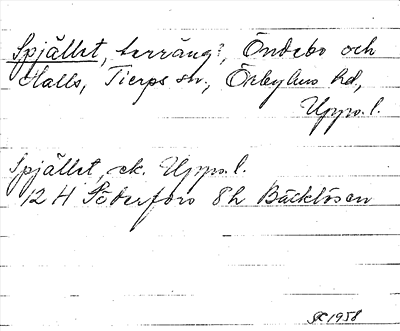 Spjället, terräng?, Öndebo och
Halls, Tierps sn., Örbyhus hd,
Upps. l.
Spjället, ek. Upps. l.
12 H Söderfors 8h Bäcklösen
1958